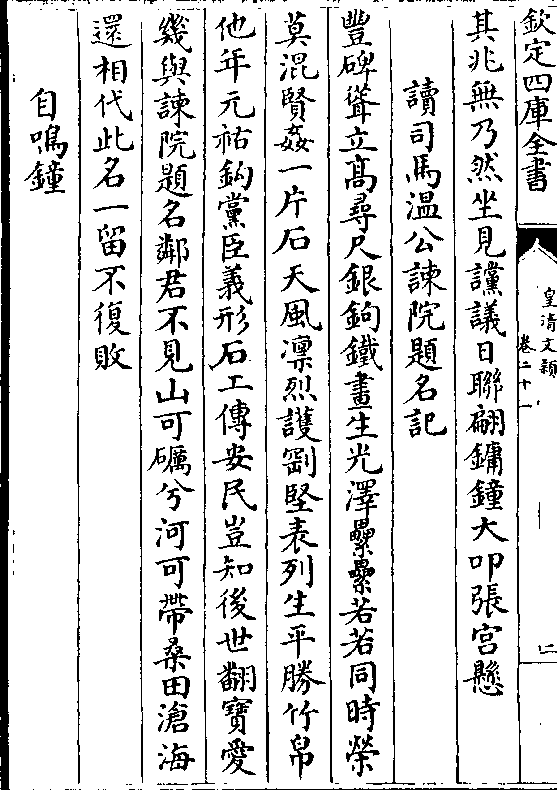 欽定四庫全書
皇清文穎
卷二十一
二
其兆無乃然坐見讜議日聯翩鏞鐘大叩張宮懸
讀司馬溫公諫院題名記
豐碑聳立髙尋尺銀鉤鐵畫生光澤纍纍若若同時榮
莫混賢姦一片石天風凛烈護劖堅表列生平勝竹帛
他年元祐鉤黨臣義形石工傳安民豈知後世翻寶愛
幾與諫院題名鄰君不見山可礪兮河可帶桑田滄海
還相代此名一留不復敗
自鳴鐘